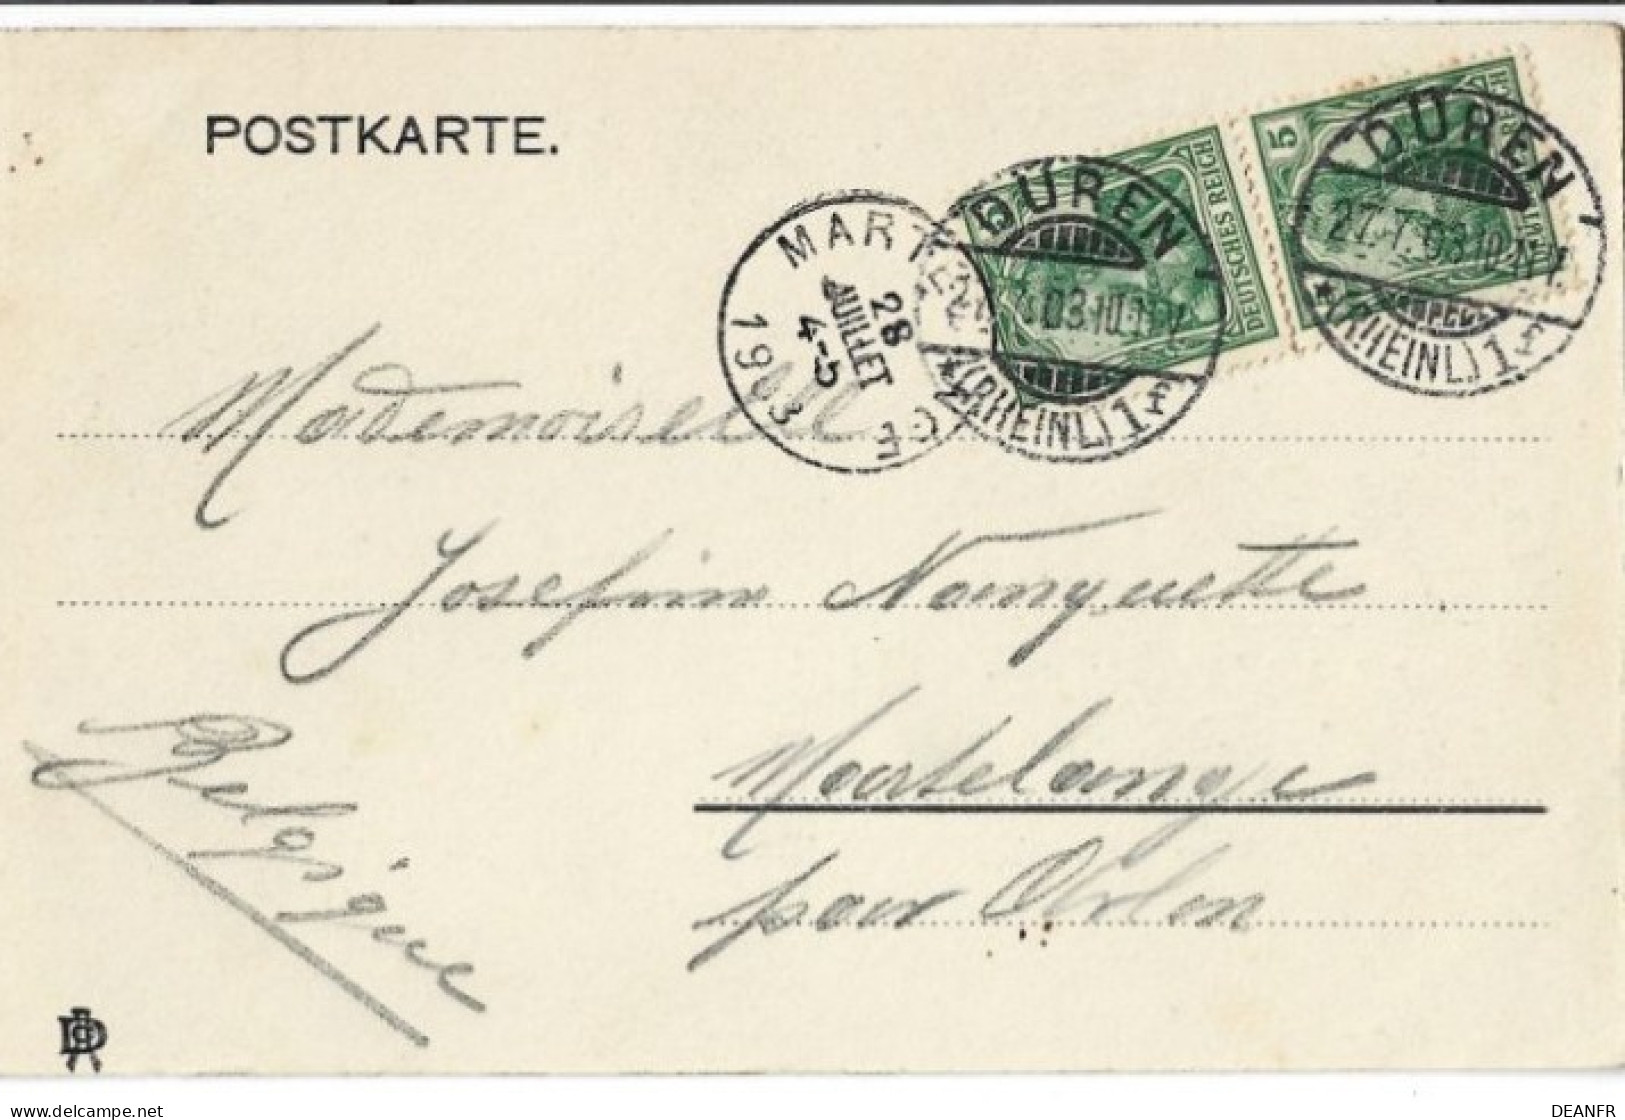 POSTKARTE.
5
DEUTSCHES REICH
DÜREN
27.7.03.10-11N.
*(RHEINL.) 1
DÜREN
.03.10-11
*(RHEINL.) 1
MARTELANGE
28
JUILLET
4-5
1903
Mademoiselle
Josefine
Martelange
par Arlon
Belgique
delcampe.net
DEANFR